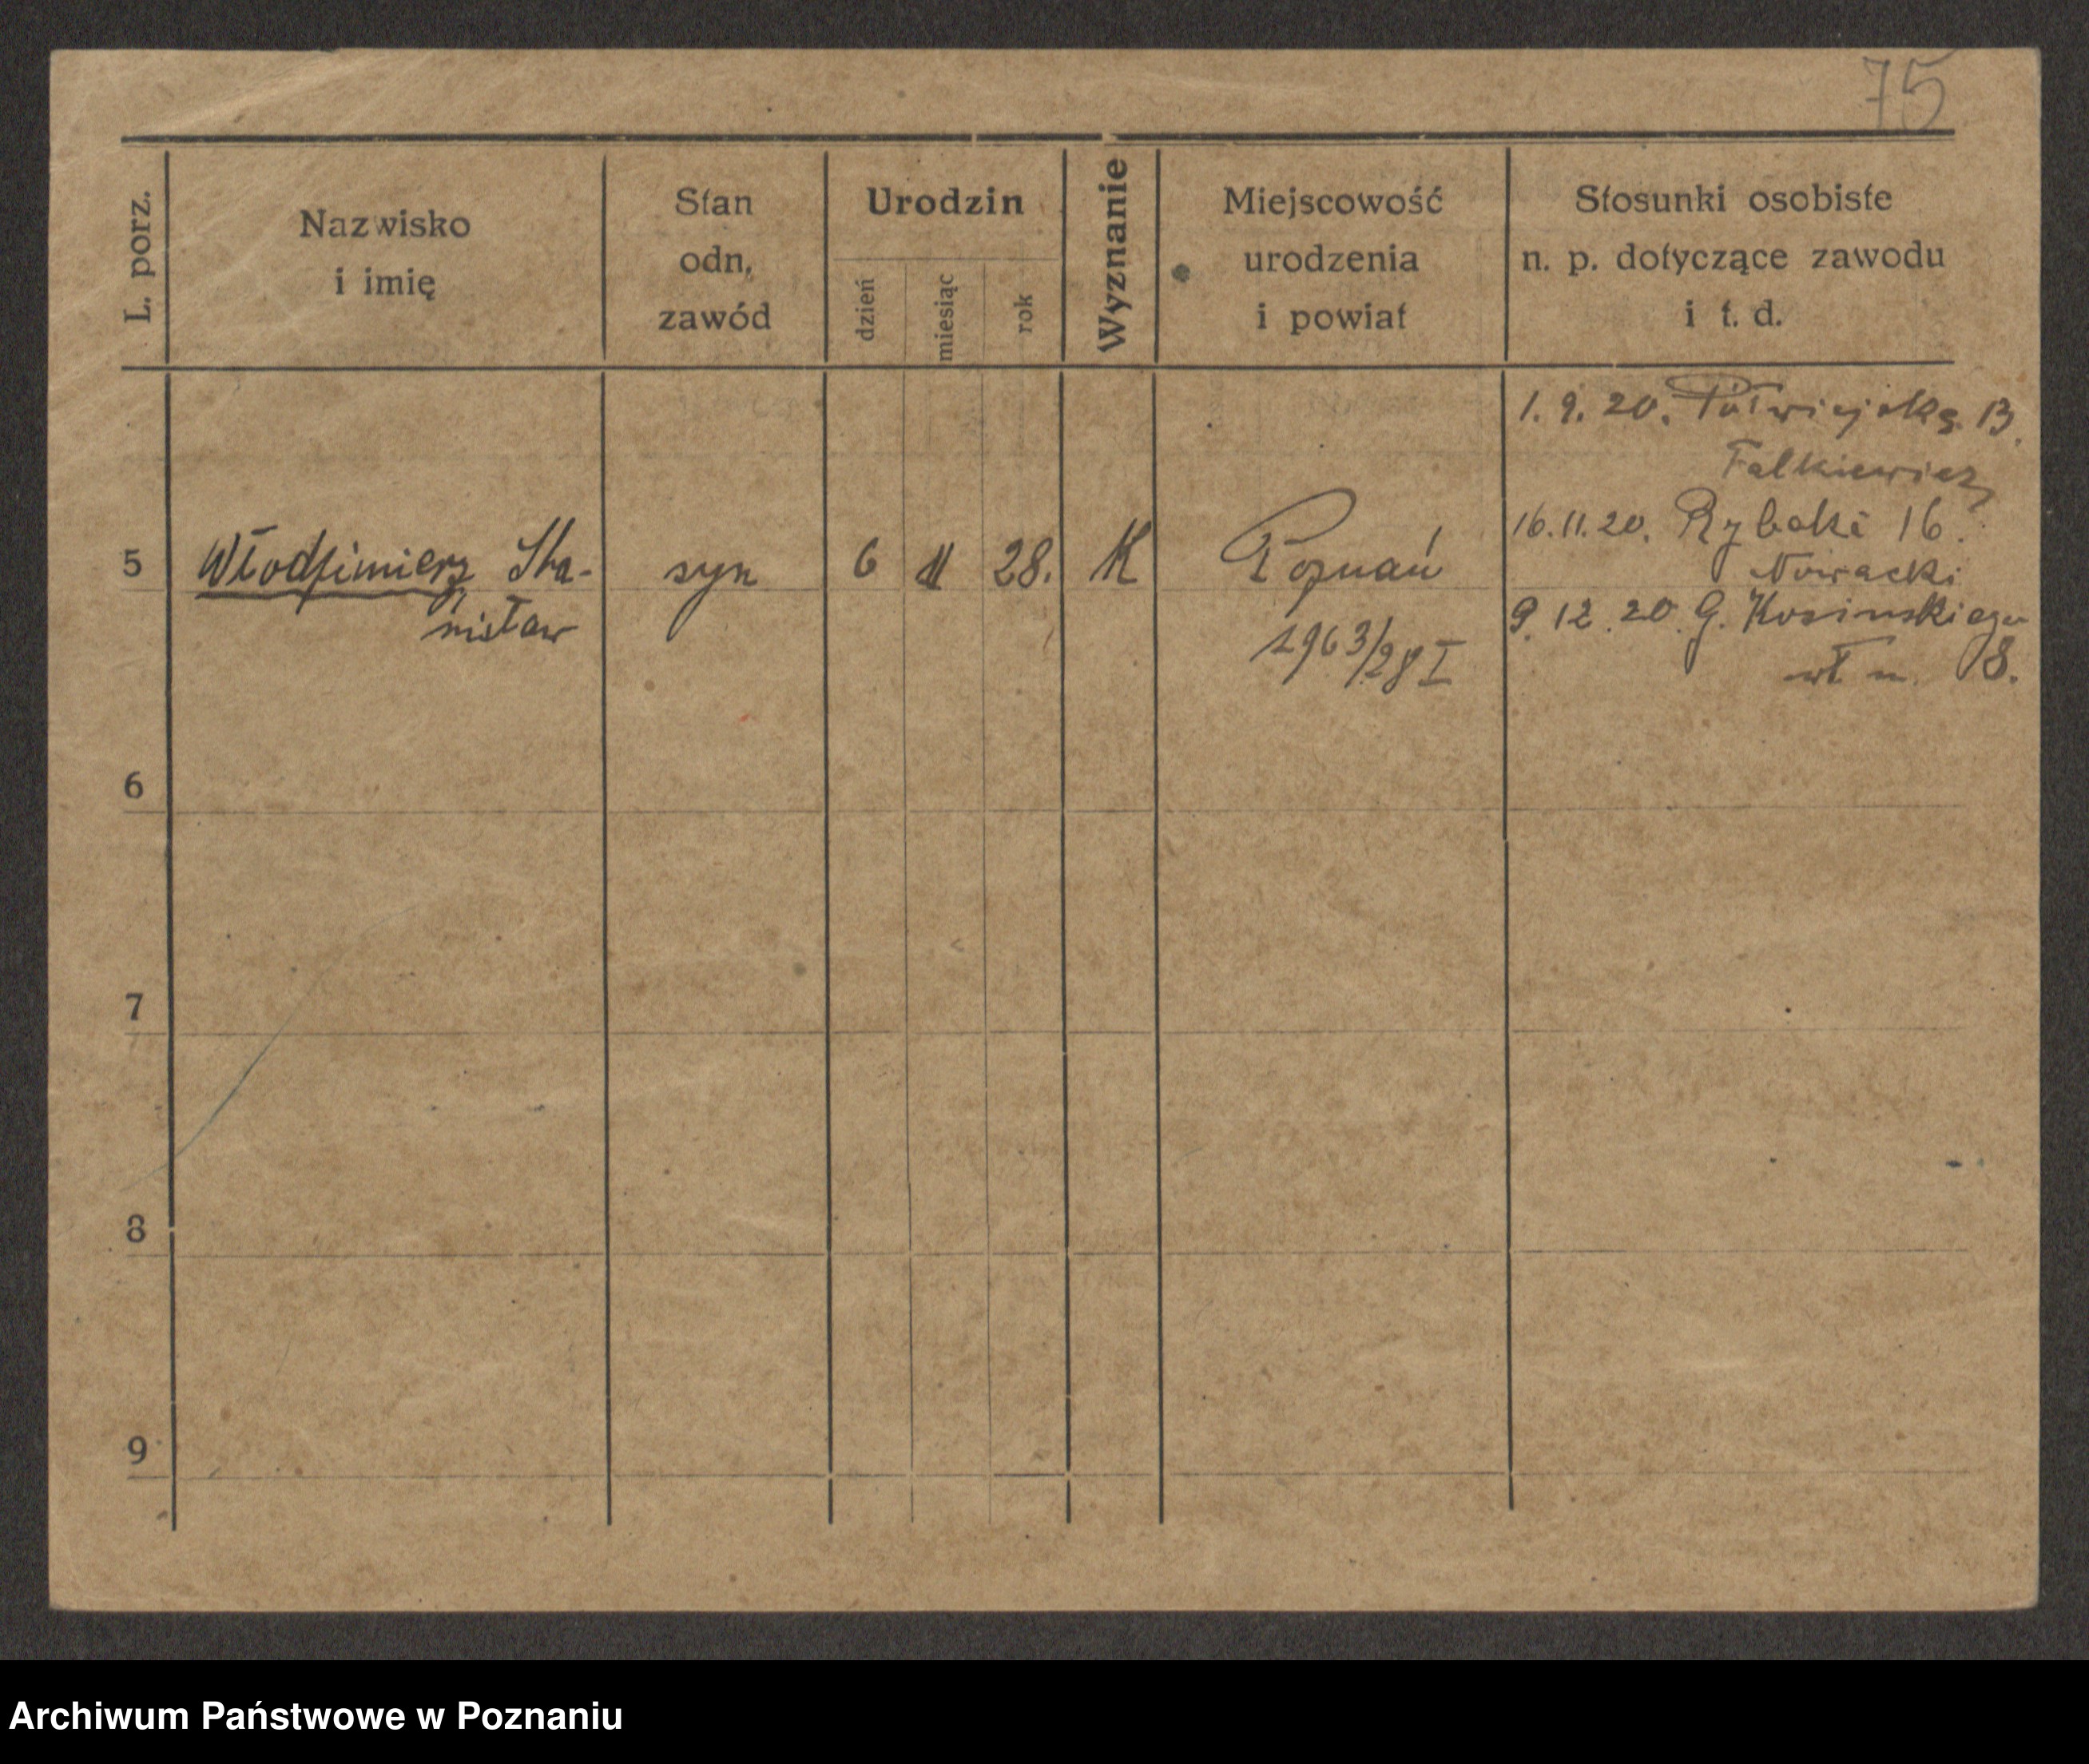 75
L. porz.
Nazwisko
i imię
Stan
odn,
zawód
Urodzin
dzień
miesiąc
rok
Wyznanie
Miejscowość
urodzenia
i powiat
Stosunki osobiste
n. p. dotyczące zawodu
i t. d.
1. 9. 20. Półwiejska 13.
Falkiewicz
16. 11. 20. Rybaki 16.
Nowacki
9. 12. 20. G. Kosinskiego
wł m. 8.
5 Włodzimierz Sta-
nisław
syn 6 11 28. K Poznań
1963/28 I
6
7
8
9
Archiwum Państwowe w Poznaniu